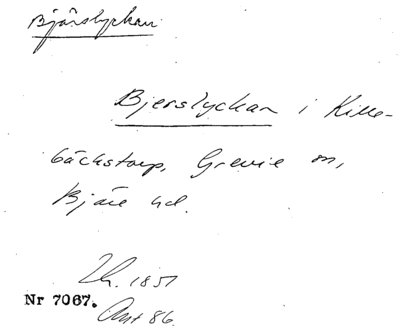 Bjärslyckan
Bjerslyckan i Kille-
bäckstorp, Grevie sn,
Bjäre hd.
Lh. 1851
Nr 7067.
Ant 86.